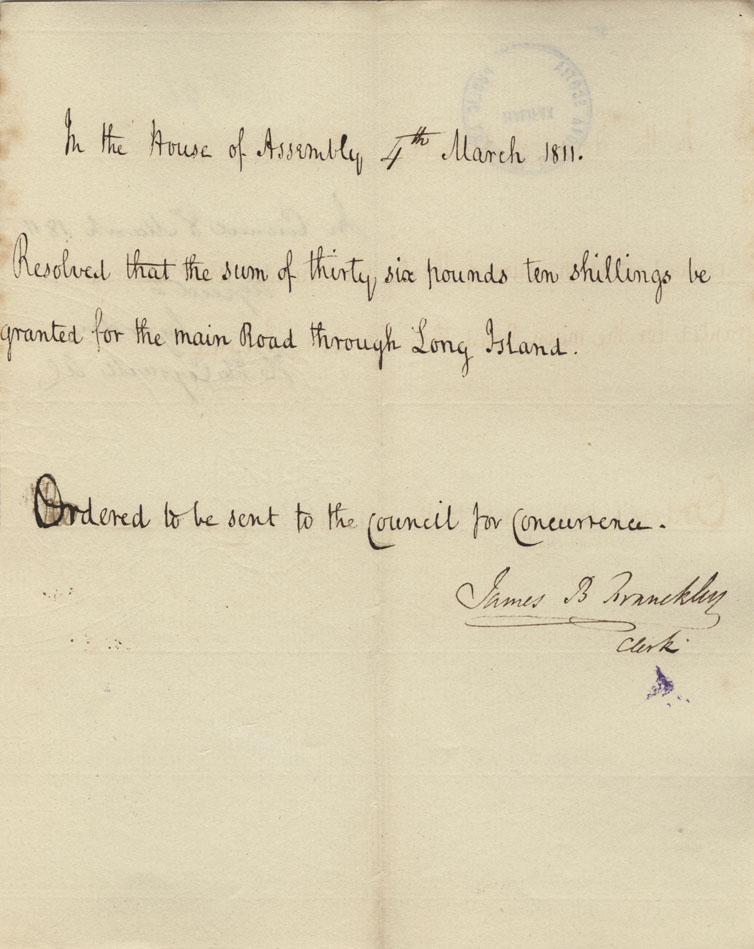 In the House of Assembly 4th March 1811.
Resolved that the sum of thirty six pounds ten shillings be
granted for the main Road through Long Island.
Ordered to be sent to the Council for Concurrence.
James B Franckley
Clerk